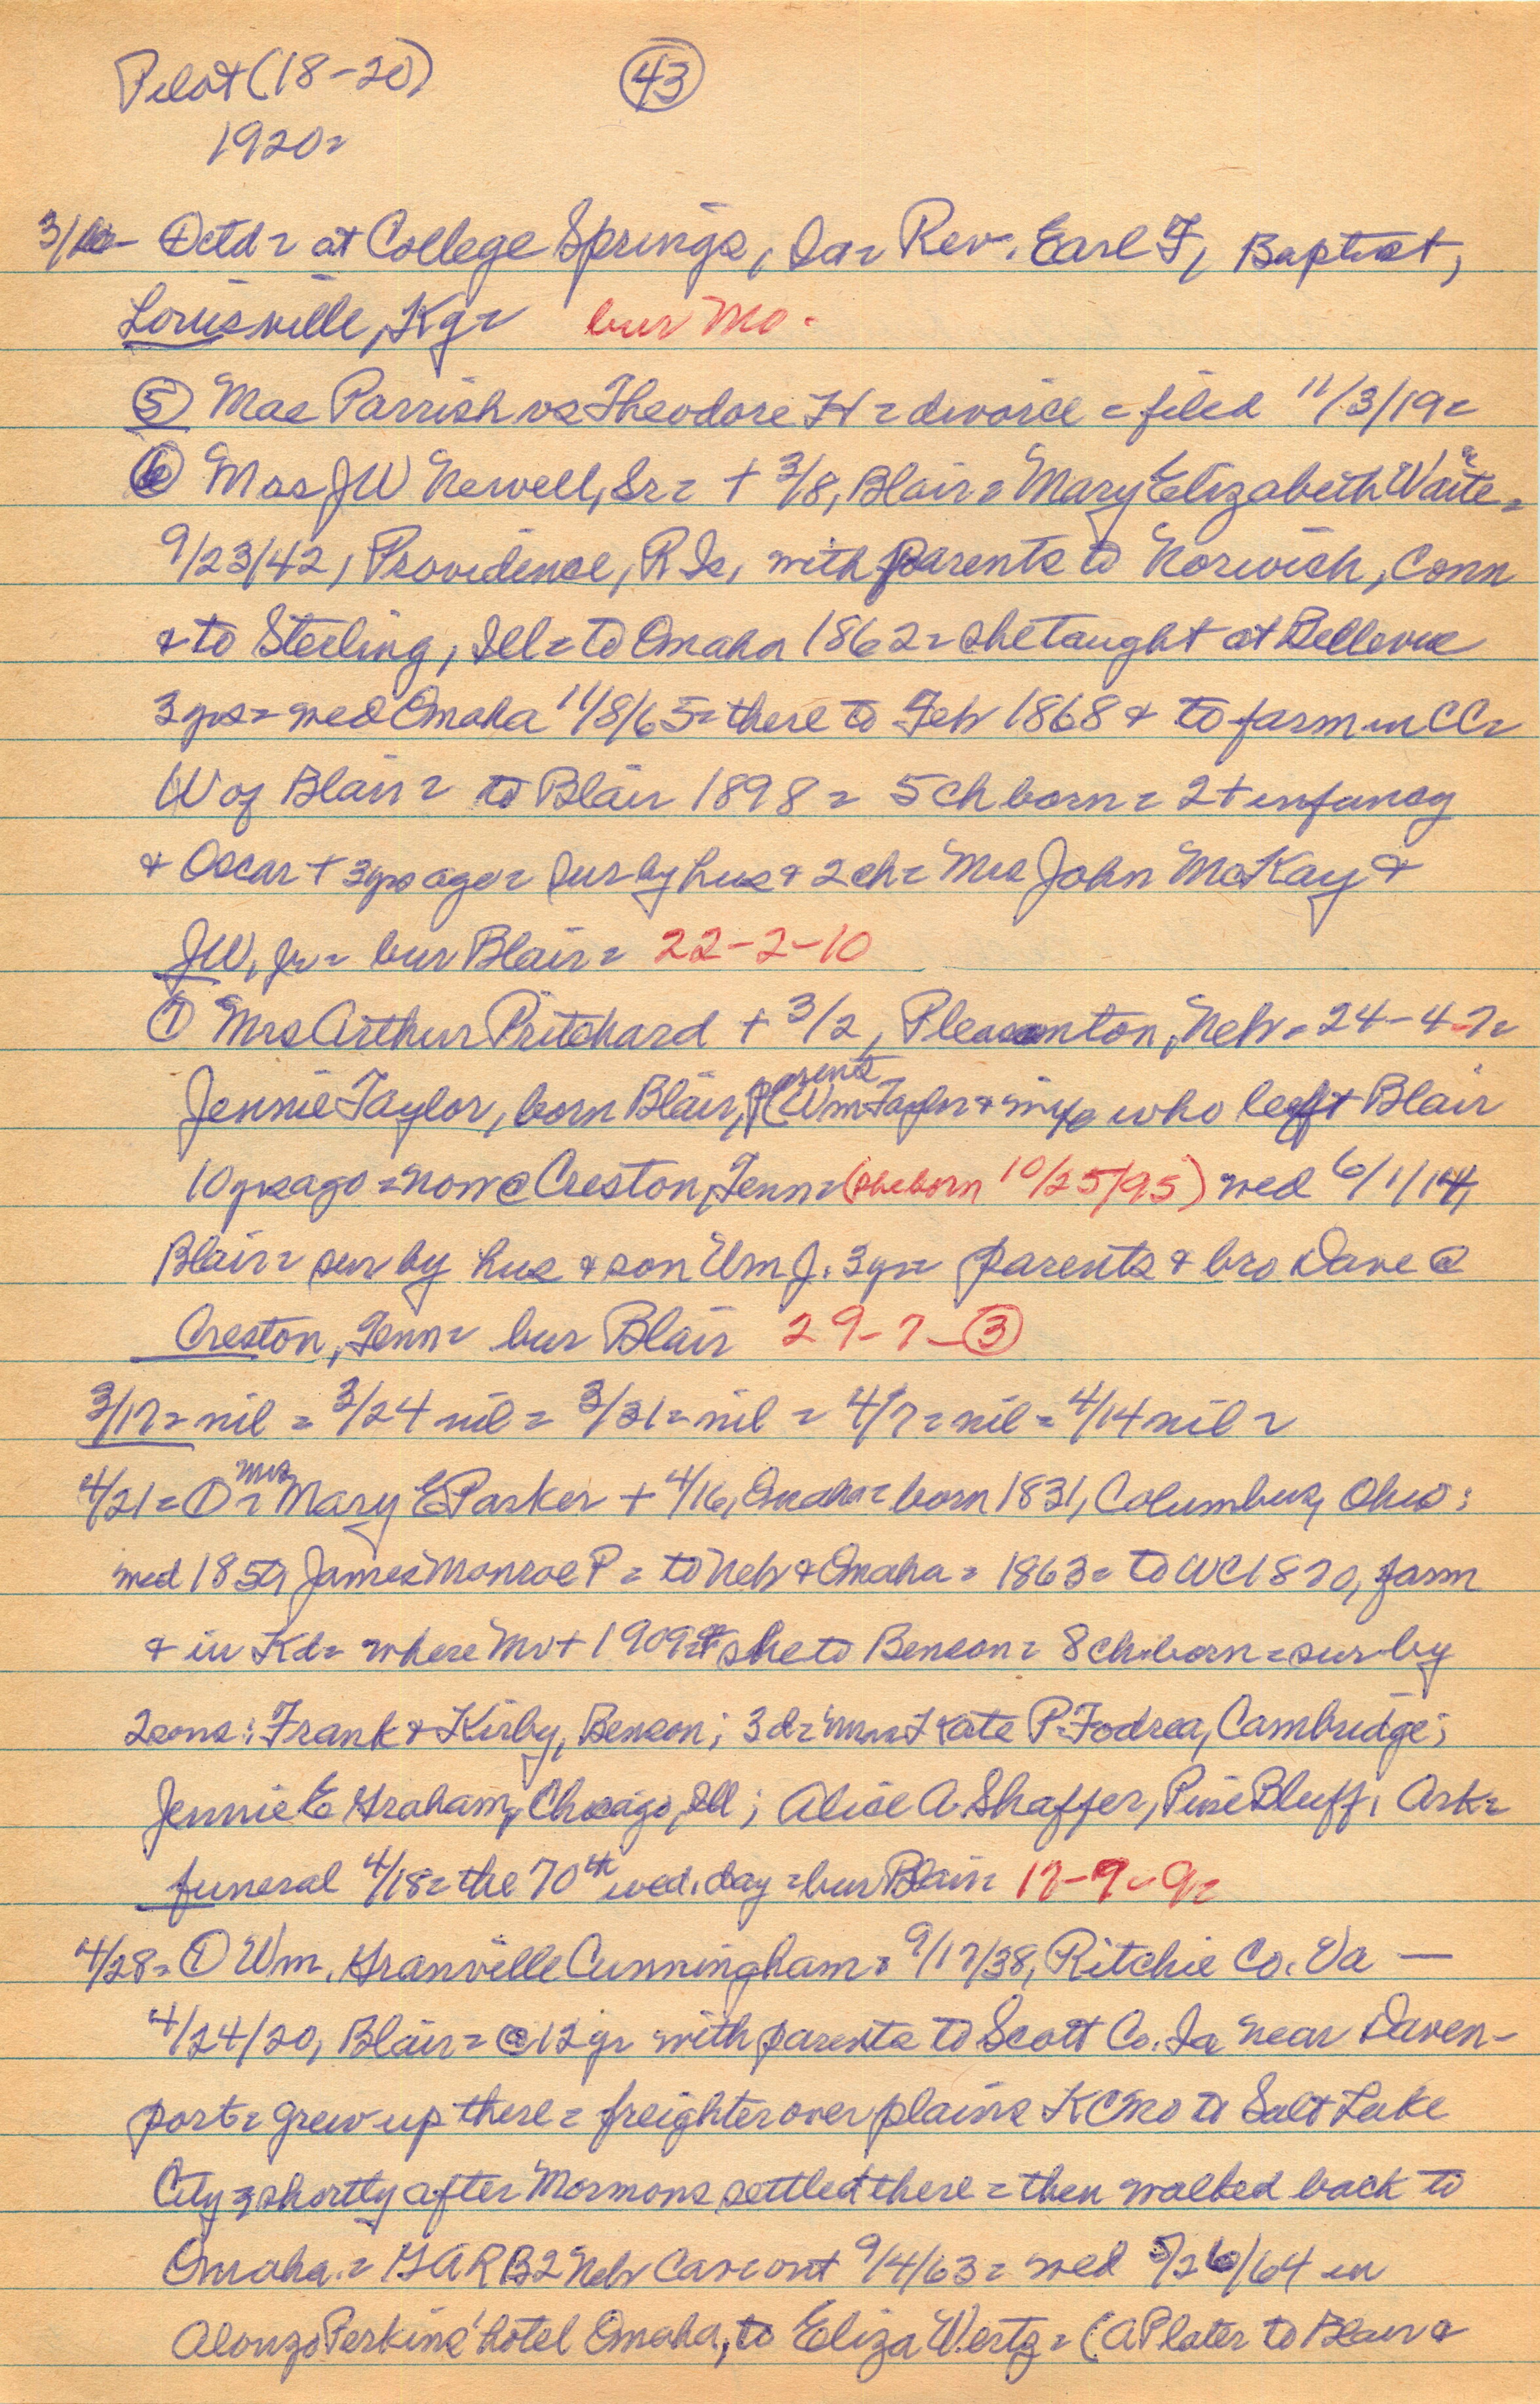 Pilot (18-20) 43
1920=
3/10- ctd= at College Springs, Ia= Rev. Earl F, Baptist,
Louisville, Ky= bur Mo.
5 Mae Parrish vs Theodore H= divorce = filed 11/3/19=
6 Mrs JW Newell, Sr= + 3/8, Blair= Mary Elizabeth Waite=
9/23/42, Providence, R Is, with parents to Norwich, Conn
& to Sterling, Ill= to Omaha 1862= she taught at Bellevue
3 yrs= wed Omaha 11/8/65= there to Feb 1868 & to farm in CC=
W of Blair= to Blair 1898= 5 ch born= 2 + infancy
& Oscar + 3 yrs ago= sur by hus & 2 ch= Mrs John McKay &
JW, Jr= bur Blair= 22-2-10
1 Mrs Arthur Pritchard + 3/2, Pleasanton, Neb= 24-4-7=
Jennie Taylor, born Blair, parents (Wm Taylor & wife who left Blair
10 yrs ago = now @ Creston, Tenn= (she born 10/25/95) wed 6/1/14,
Blair= sur by hus & son Wm J. 3 yr= parents & bro Dave @
Creston, Tenn= bur Blair 29-7-3
3/17= nil = 3/24 nil = 3/31= nil = 4/7= nil = 4/14 nil =
4/21= 1= Mrs Mary E Parker + 4/16, Omaha= born 1831, Columbus, Ohio:
wed 1850, James Monroe P = to Neb & Omaha = 1863= to WC 1870, farm
& in Kd= where Mr + 1909= she to Benson= 8 ch born= sur by
2 sons: Frank & Kirby, Benson; 3 d= Kate P. Fodrea, Cambridge;
Jennie E Graham, Chicago, Ill; Alice A. Shaffer, Pine Bluff, Ark=
funeral 4/18= the 70th wed. day = bur Blair= 17-9-9=
4/28= 1 Wm. Granville Cunningham= 9/17/38, Ritchie Co. Va —
4/24/20, Blair= @ 12 yr with parents to Scott Co. Ia near Daven-
port= grew up there= freighter over plains KC Mo to Salt Lake
City shortly after Mormons settled there= then walked back to
Omaha.= GAR B 2 Neb Cav= out 9/4/63= wed 5/26/64 in
Alonzo Perkins' hotel Omaha, to Eliza Wertz= (AP later to Blair &